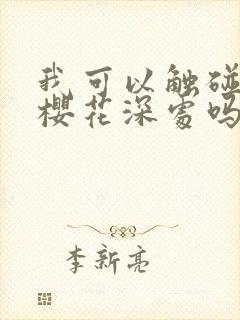 我可以触碰
樱花深处吗
李新亮